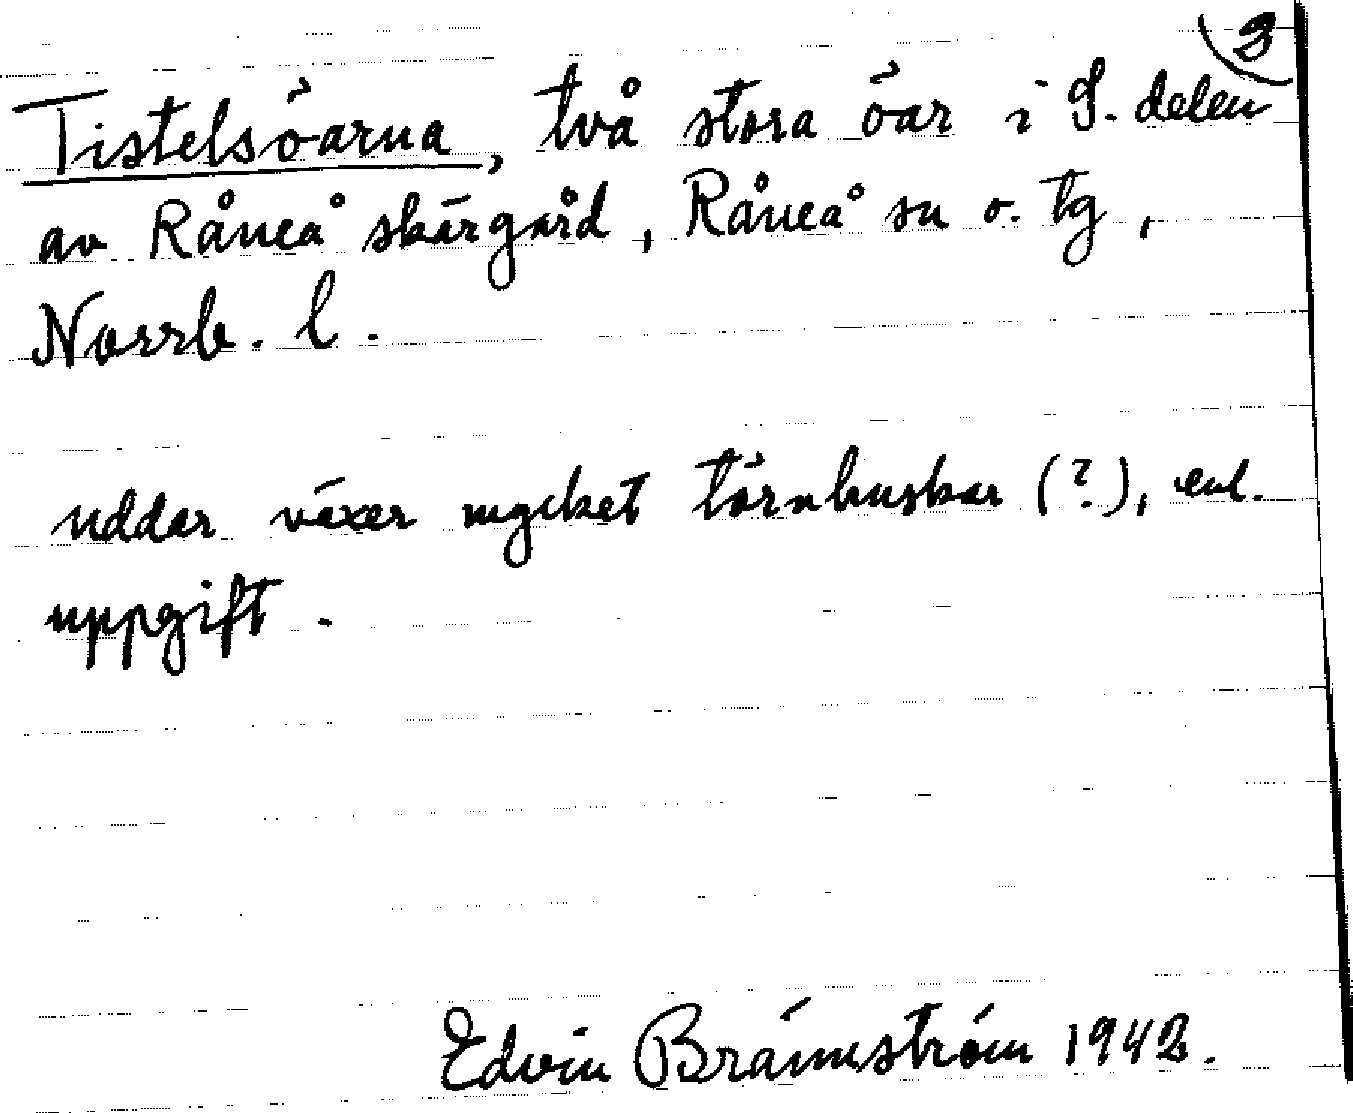 3
Tistelsöarna, två stora öar i S. delen
av Råneå skärgård, Råneå sn o. tg,
Norrb. l.
uddar växer mycket törnbuskar (?), enl.
uppgift.
Edvin Brännström 1942.